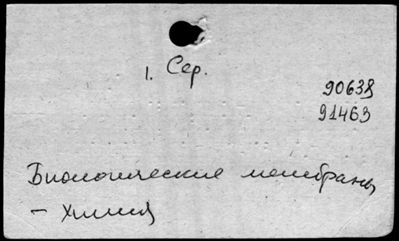 1. Сер.
90638
91463
Биологические мембраны
- химия